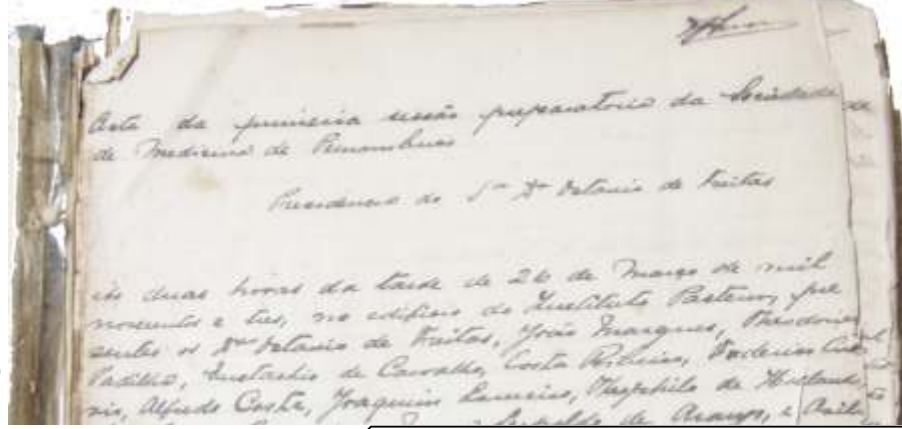 Acta da primeira sessão preparatoria da Sociedade de
de Medicina de Pernambuco
Presidencia do Snr Dr Octavio de Freitas
ás duas horas da tarde de 26 de Março de mil
novecentos e tres, no edificio do Instituto Pasteur, pre
sentes os Drs Octavio de Freitas, João Marques, Theodorico
Padilha, Eustachio de Carvalho, Costa Ribeiro,
Alfredo Costa, Joaquim Loureiro, Theophilo de Hollanda,
Leopoldo de Araujo, e